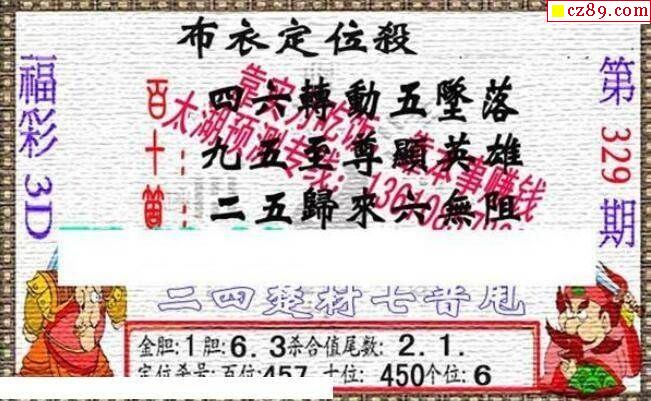 cz89.com
布衣定位殺
福彩3D
第329期
百：四六轉動五墜落
十：九五至尊顯英雄
二五歸來六無阻
靠实力吃饭 靠本事赚钱
太湖预测专线：
二四楚材七晋甩
金胆:1胆:6.3杀合值尾数:2.1.
定位杀号:百位:457 十位:450个位:6